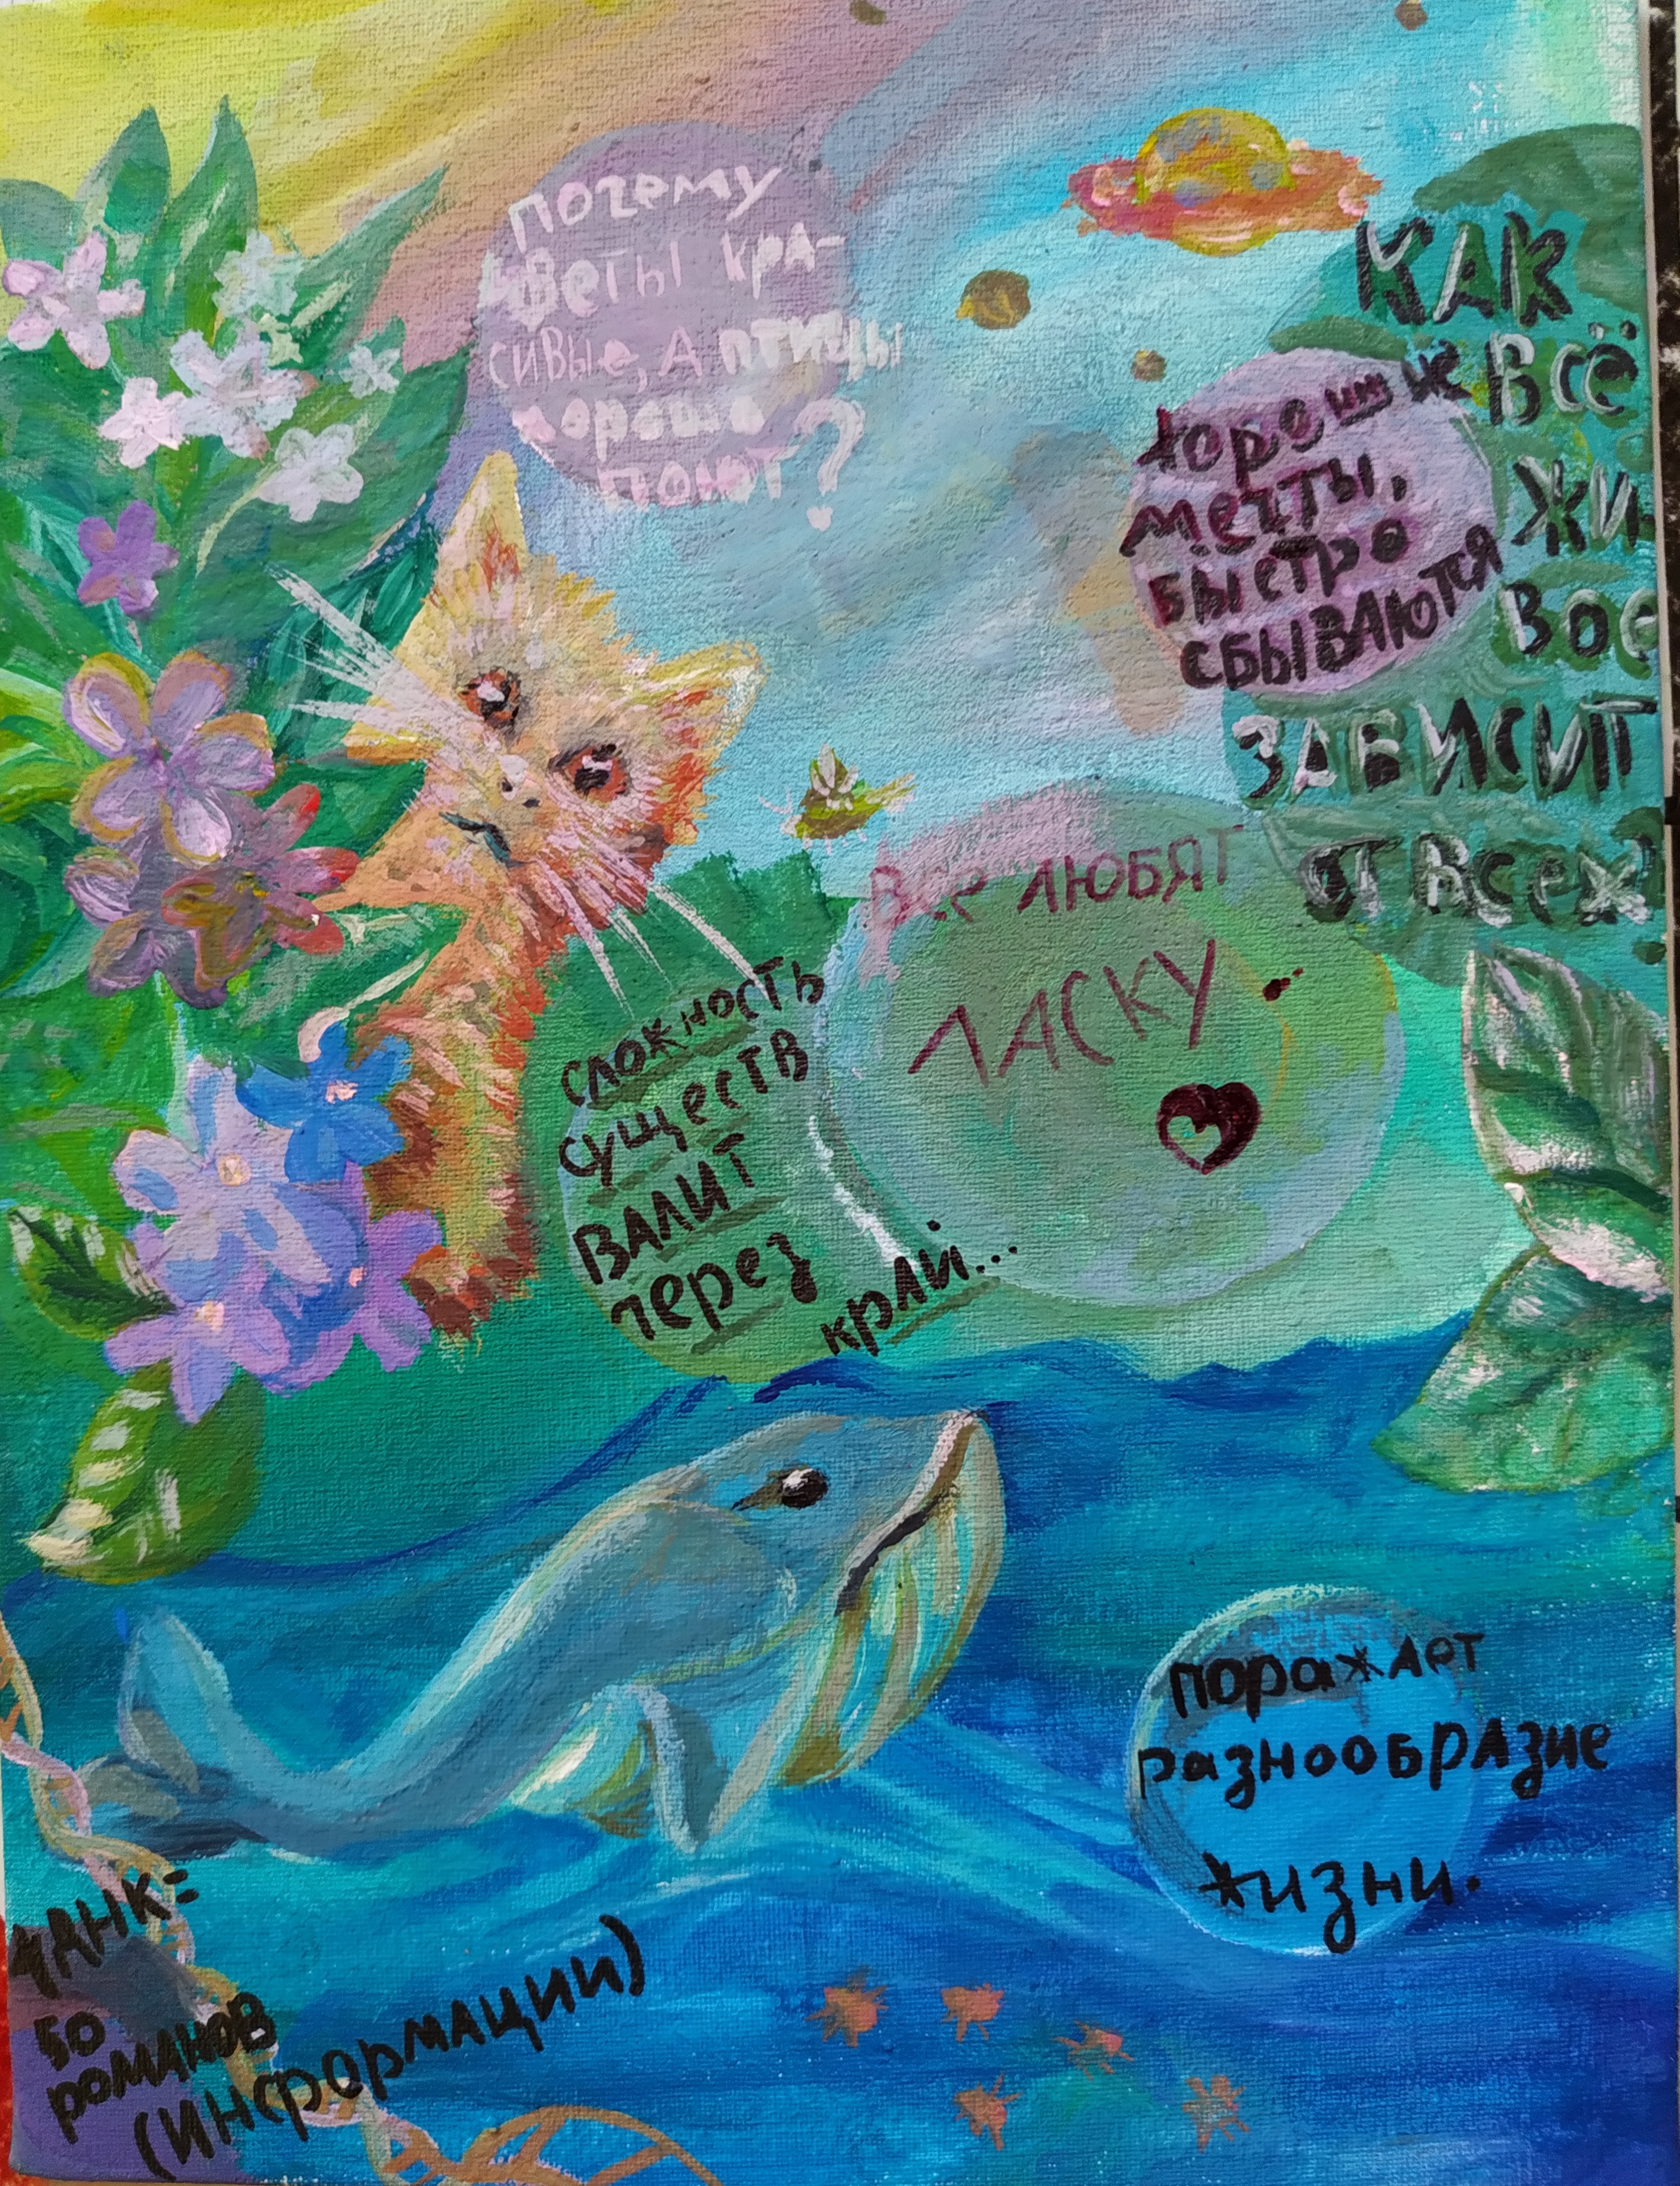 почему
цветы кра-
сивые, а птицы
хорошо
поют?
КАК
ВСЁ
ЖИ
ВОЕ
ЗАВИСИТ
ОТ ВСЕХ
хорошие
мечты,
быстро
сбываются
Все ЛЮБЯТ
ЛАСКУ.
сложность
существ
ВАЛИТ
через
край...
поражает
разнообразие
жизни.
1ДНК=
50
романов
(информации)